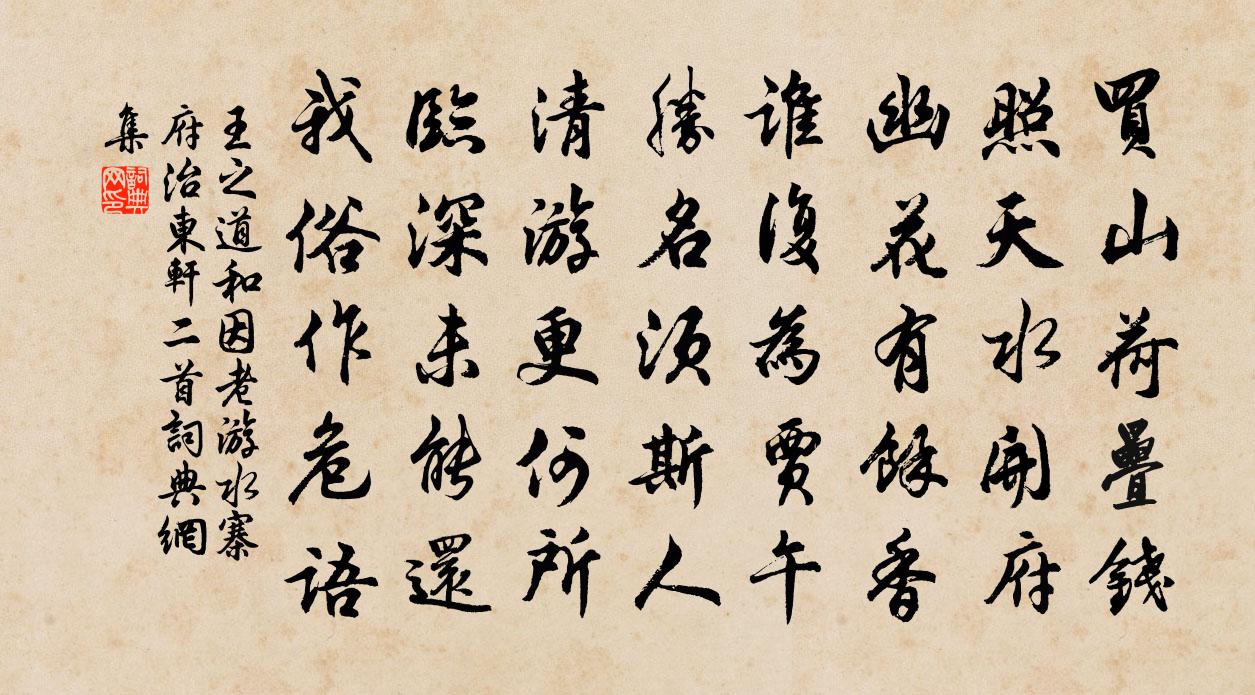 買山荷疊錢
照天水開府
幽花有餘香
誰復為賈午
勝名須斯人
清游更何所
臨深未能還
我俗作危語
王之道和因老游水寨
府治東軒二首詞典網
集
詞典網印